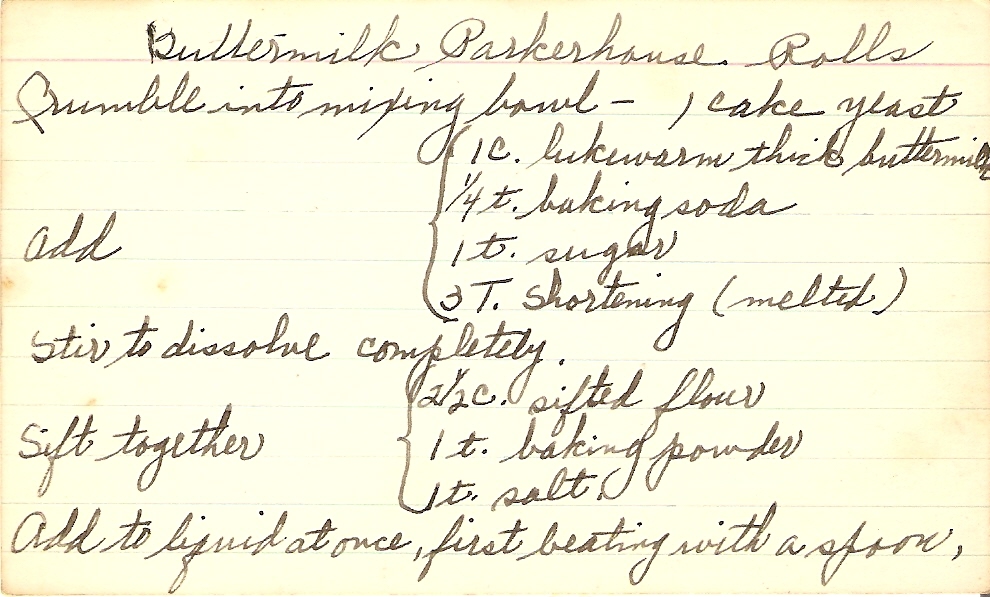 Buttermilk Parkerhouse Rolls
Crumble into mixing bowl - 1 cake yeast
1 c. lukewarm thick buttermilk
1/4 t. baking soda
Add
1 t. sugar
3 T. shortening (melted)
Stir to dissolve completely.
2 1/2 c. sifted flour
Sift together
1 t. baking powder
1 t. salt.
Add to liquid at once, first beating with a spoon,